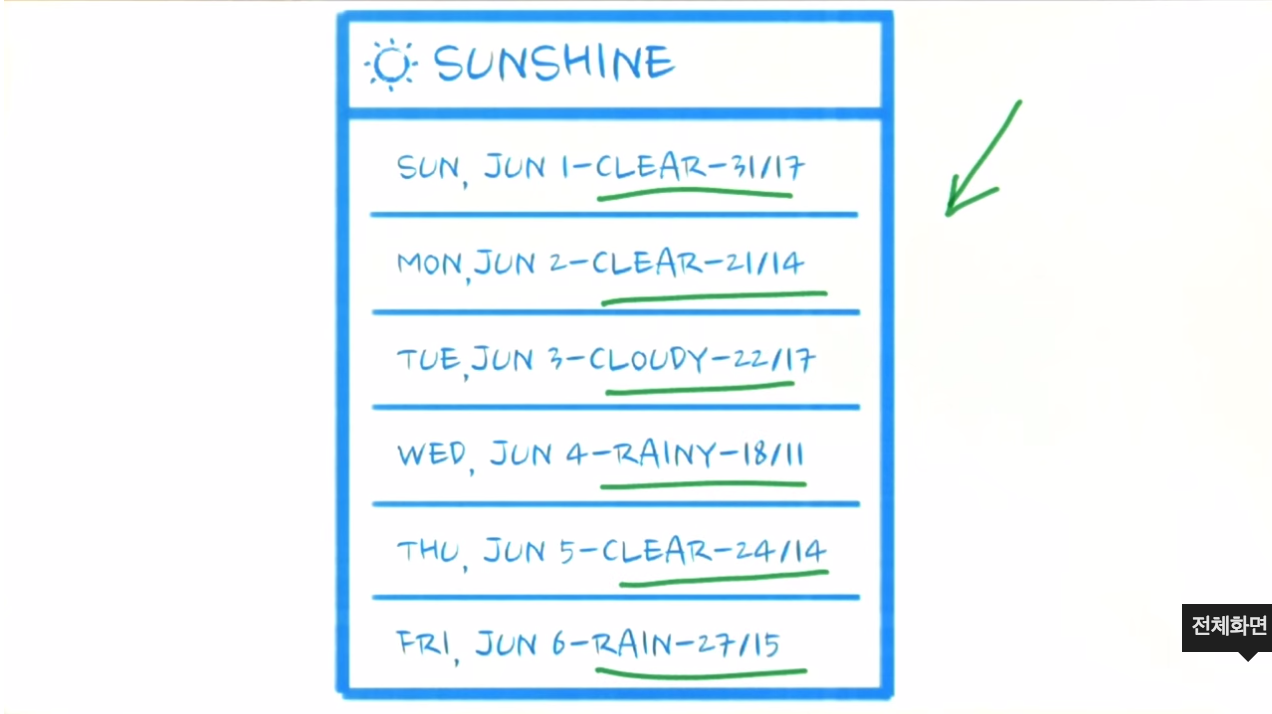 SUNSHINE
SUN, JUN 1-CLEAR-31/17
MON, JUN 2-CLEAR-21/14
TUE, JUN 3-CLOUDY-22/17
WED, JUN 4-RAINY-18/11
THU, JUN 5-CLEAR-24/14
FRI, JUN 6-RAIN-27/15
전체화면